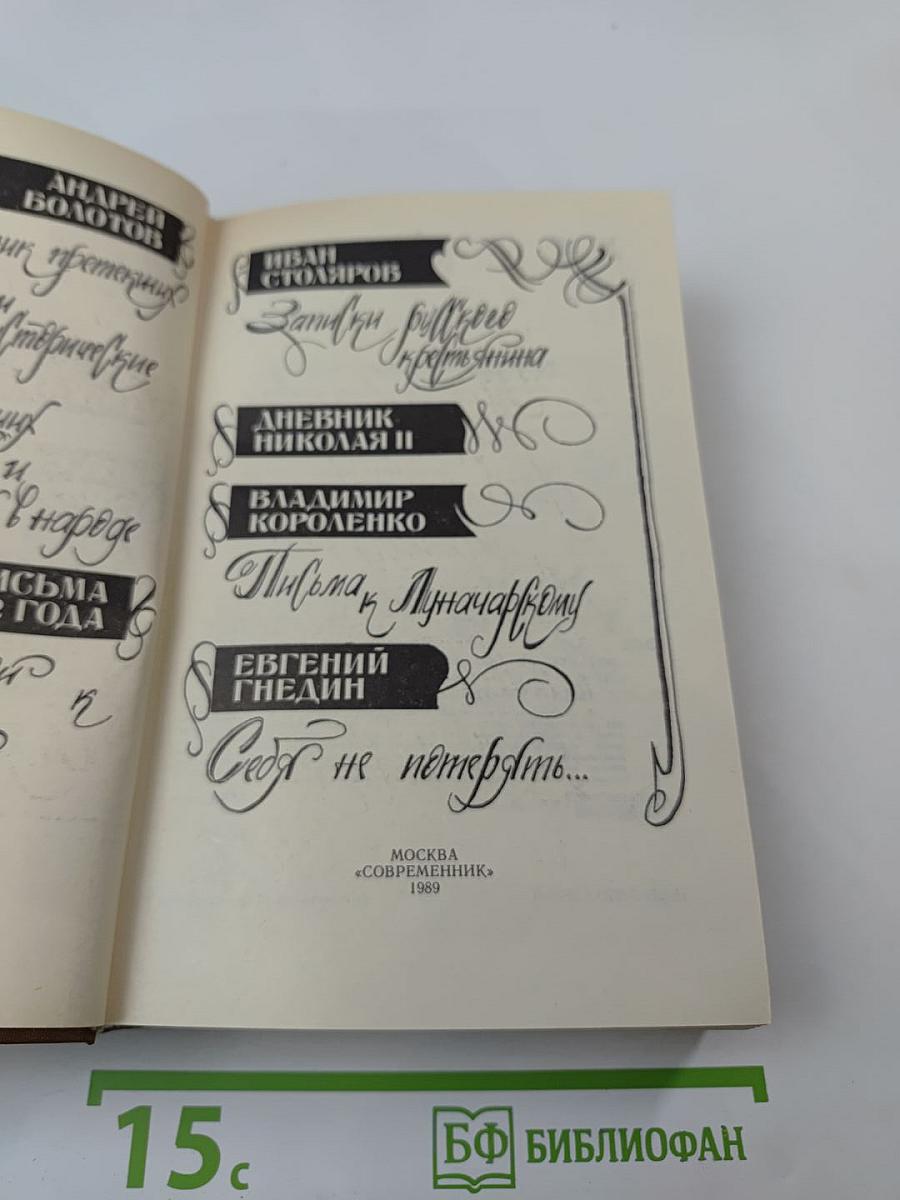 АНДРЕЙ
БОЛОТОВ
претекших
исторические
и
в народе
ПИСЬМА
ГОДА
к
ИВАН
СТОЛЯРОВ
Записки русского
крестьянина
ДНЕВНИК
НИКОЛАЯ II
ВЛАДИМИР
КОРОЛЕНКО
Письма к Луначарскому
ЕВГЕНИЙ
ГНЕДИН
Себя не потерять...
МОСКВА
«СОВРЕМЕННИК»
1989
15 с
БФ БИБЛИОФАН